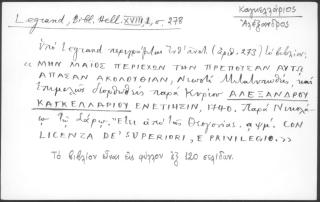 Legrand, Bibl. Hell. XVIII 1, σ. 278
Καγκελλάριος
Ἀλέξανδρος
Ὑπὸ Legrand περιγράφεται ὑπ' ἀριθ. (ἀριθ. 273) τὸ βιβλίον:
« ΜΗΝ ΜΑΪΟΣ ΠΕΡΙΕΧΩΝ ΤΗΝ ΠΡΕΠΟΥΣΑΝ ΑΥΤΩ
ΑΠΑΣΑΝ ΑΚΟΛΟΥΘΙΑΝ, Νεωστὶ Μετατυπωθεὶς, καὶ
Ἐπιμελῶς διορθωθεὶς παρὰ Κυρίου ΑΛΕΞΑΝΔΡΟΥ
ΚΑΓΚΕΛΛΑΡΙΟΥ ΕΝΕΤΙΗΣΙΝ, 1740. Παρὰ Νικολά-
ῳ τῷ Σάρῳ. Ἔτει ἀπὸ τῆς Θεογονίας. αψμ´. CON
LICENZA DE' SUPERIORI, E PRIVILEGIO. »
Τὸ βιβλίον εἶναι εἰς φύλλον ἐξ 120 σελίδων.